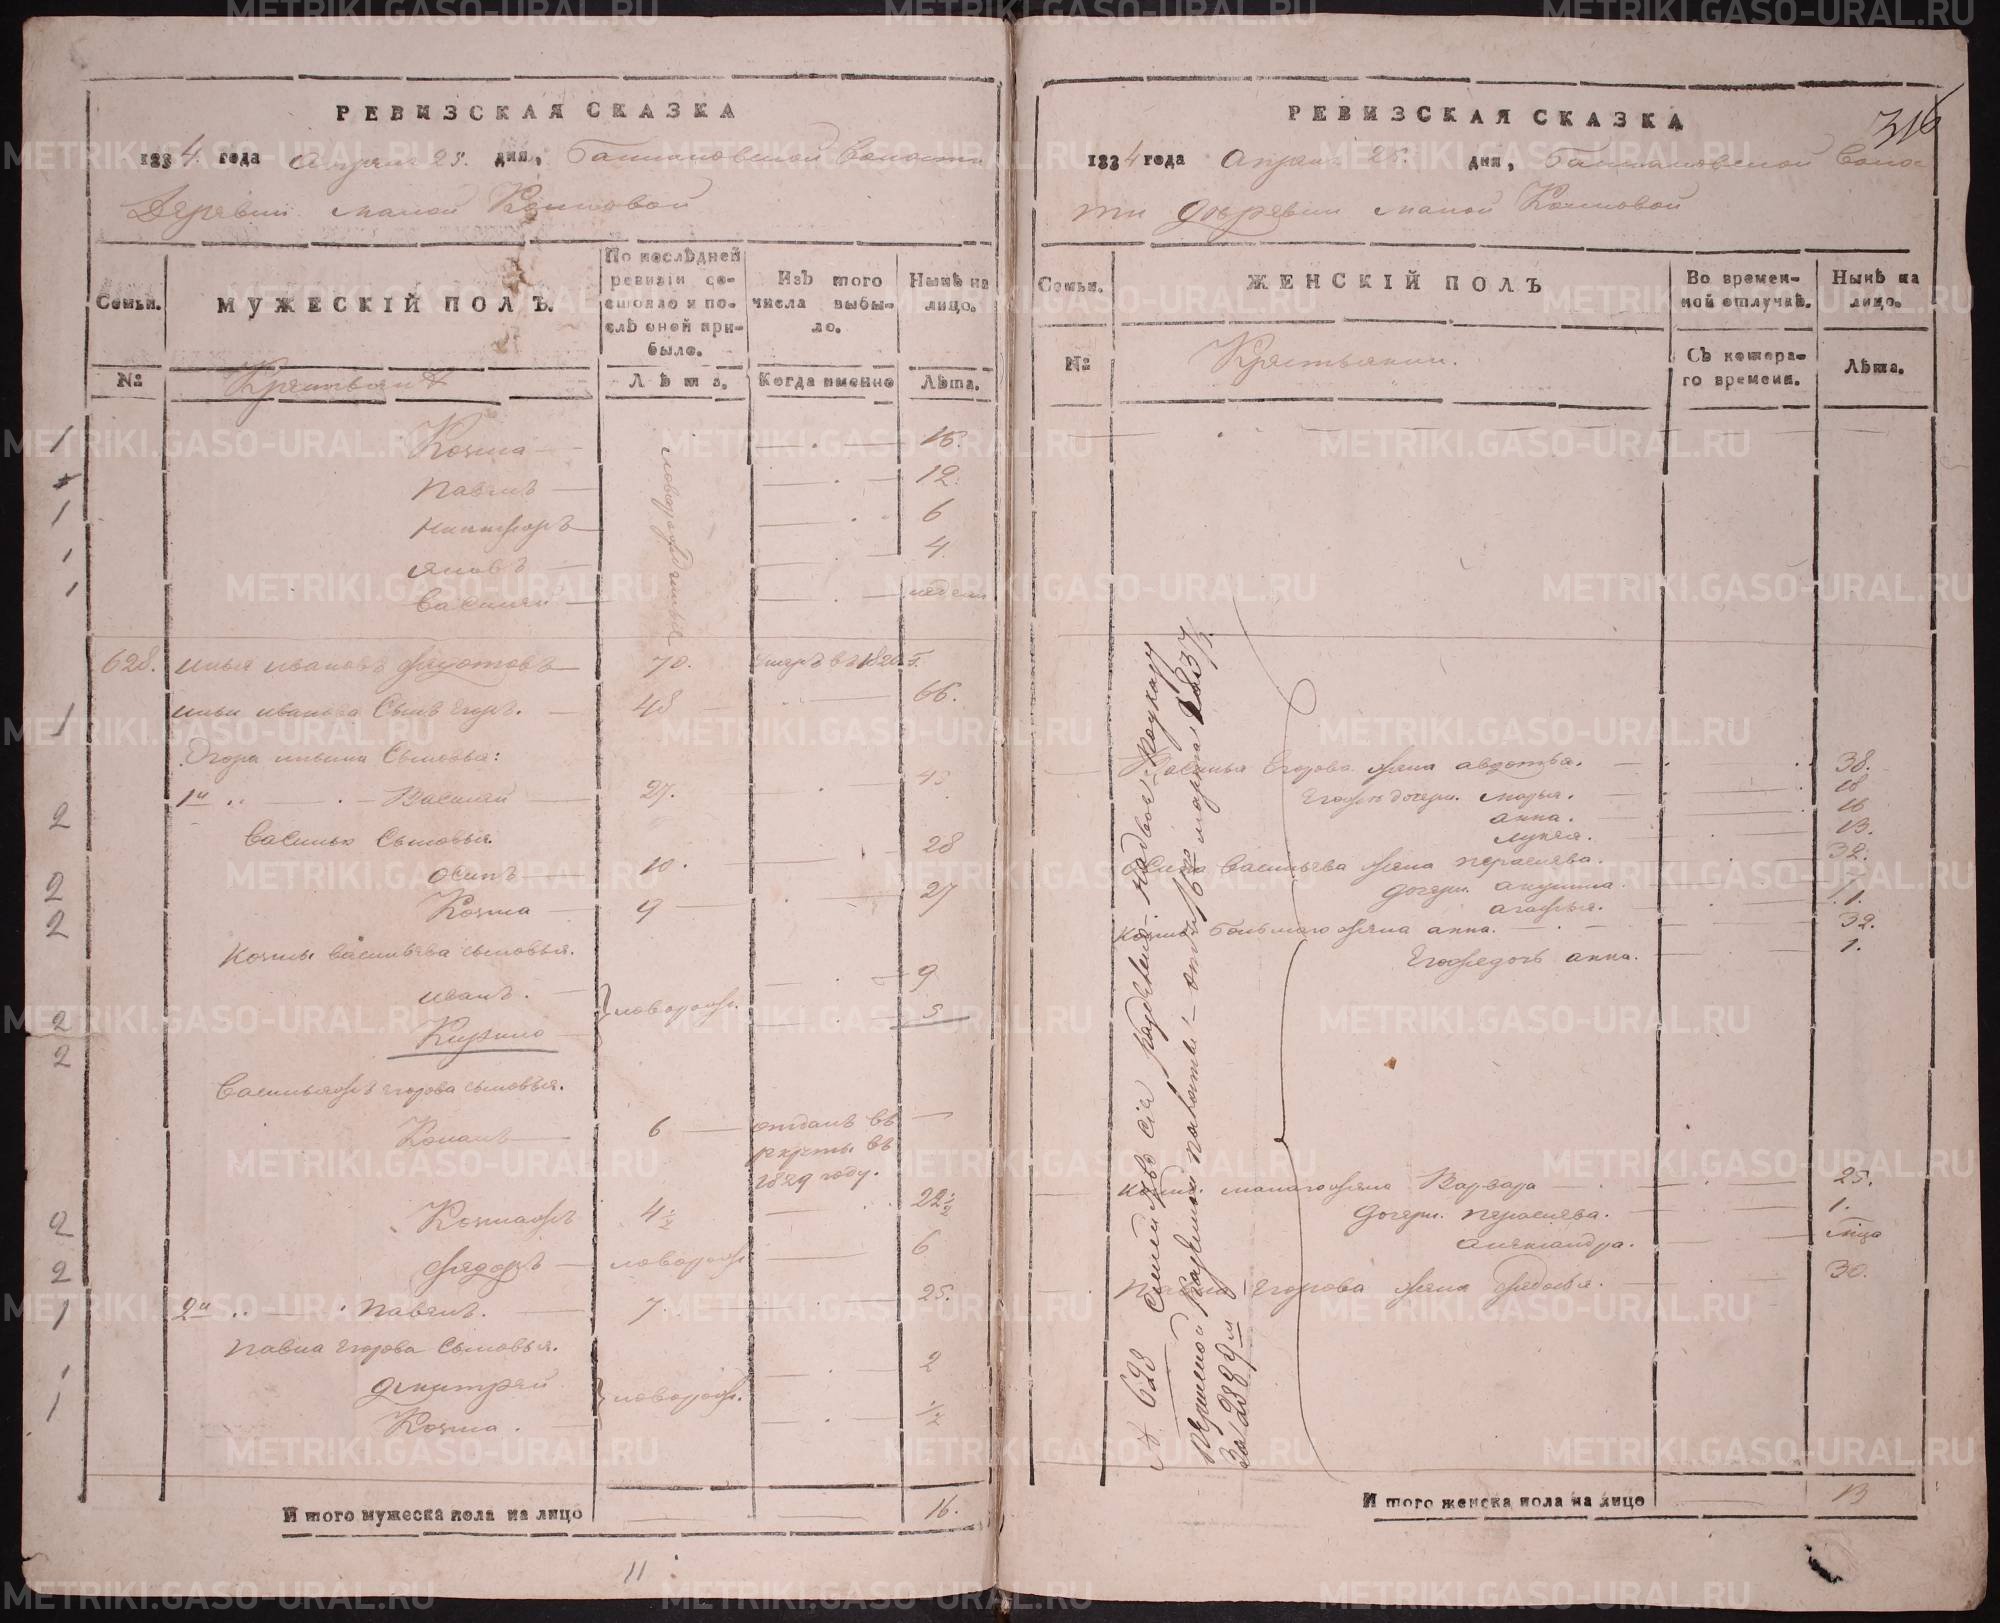 РЕВИЗСКАЯ СКАЗКА
1834 года Апреля 25. дня, Башмановской волости
Деревни малой Кошовой
Семьи.
МУЖЕСКІЙ ПОЛЪ.
По послѣдней ревизіи состояло и послѣ оной прибыло.
Изъ того числа выбыло.
Нынѣ на лицо.
№
Крестьяня
Лѣта.
Когда именно
Лѣта.
1 Козма — 16.
Павелъ — 12.
1 Никифоръ 6
1 Яковъ — 4
1 Василей — недели
новорожденные
628. Илья Ивановъ 70. умеръ в 1826 г.
1 Ильи Иванова Сынъ Егоръ. — 48 — 66.
Егора Ильина Сыновья:
2 1й Василей 27. 45
Василья Сыновья.
2 Осипъ 10. 28
2 Козма 9 27
Козмы Васильева сыновья.
2 Иванъ. 9
2 Кирило 3
новорож.
Васильяжъ Егорова сыновья.
Романъ 6 отданъ въ рекруты въ 1829 году.
2 Козмажъ 4 1/2 22 1/2
2 Федоръ новорож 6
1 2й Павелъ. 7. 25.
Павла Егорова Сыновья.
1 Дмитрей 2
1 Козма. 1/2
новорож.
И того мужеска пола на лицо 16.
11
РЕВИЗСКАЯ СКАЗКА
316
1834 года Апреля 25. дня, Башмановской воло
сти Деревни малой Кошовой
Семьи.
ЖЕНСКІЙ ПОЛЪ
Во временной отлучкѣ.
Нынѣ на лицо.
№
Крестьянки.
Съ котораго времени.
Лѣта.
Василья Егорова жена Авдотья. 38.
Егожъ дочери. Марья. 18
Анна. 16
Лукея. 13.
Осипа Васильева жена Парасковья. 32.
дочери. Акулина.
Агафья. 1.
Козмы Большаго жена Анна. 32.
Егожъ дочь Анна. 1.
Козмы малаго жена Варвара 25.
Дочери. Парасковья. 1.
Александра.
Павла Егорова жена Федосья. 30.
№ 628 семейство сіе разделено надвое по указу
пермской казенной палаты — отъ 16го марта 1837 г.
За 2389м
И того женска пола на лицо 13